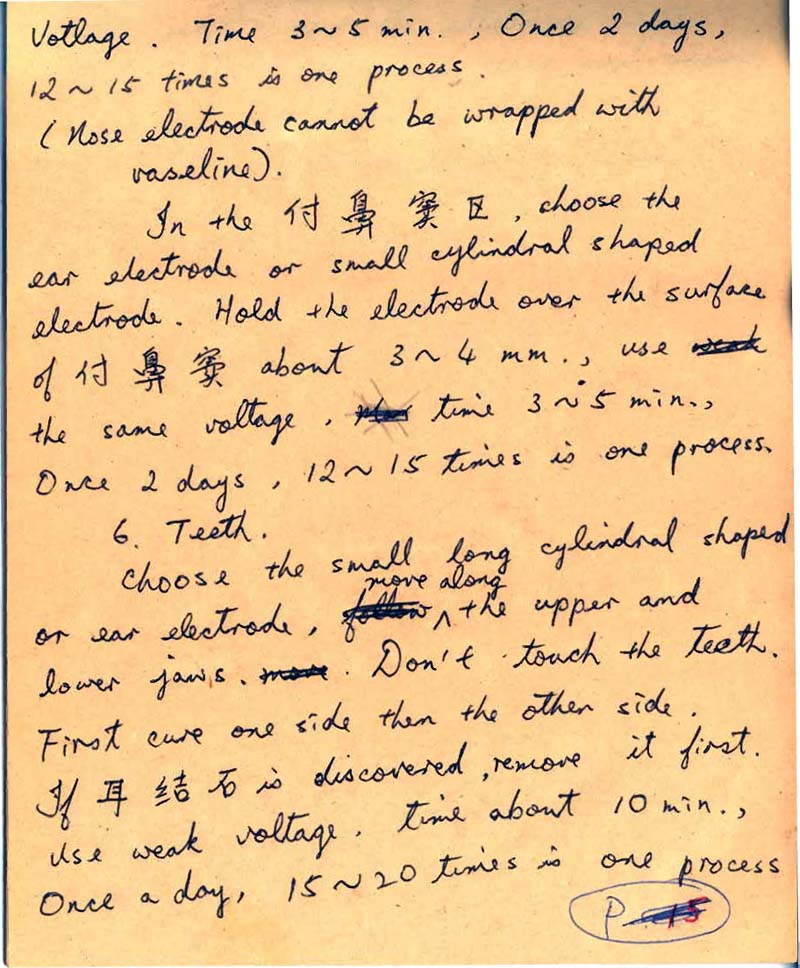 Votlage. Time 3~5 min., Once 2 days,
12~15 times is one process.
(Nose electrode cannot be wrapped with
vaseline).
In the 付鼻窦区, choose the
ear electrode or small cylindral shaped
electrode. Hold the electrode over the surface
of 付鼻窦 about 3~4 mm., use weak
the same voltage, time 3~5 min.,
Once 2 days, 12~15 times is one process.
6. Teeth.
Choose the small long cylindral shaped
move along
or ear electrode, follow ^ the upper and
lower jaws. move. Don't touch the teeth.
First cure one side then the other side.
If 耳结石 is discovered, remove it first.
Use weak voltage. time about 10 min.,
Once a day, 15~20 times is one process
P 15